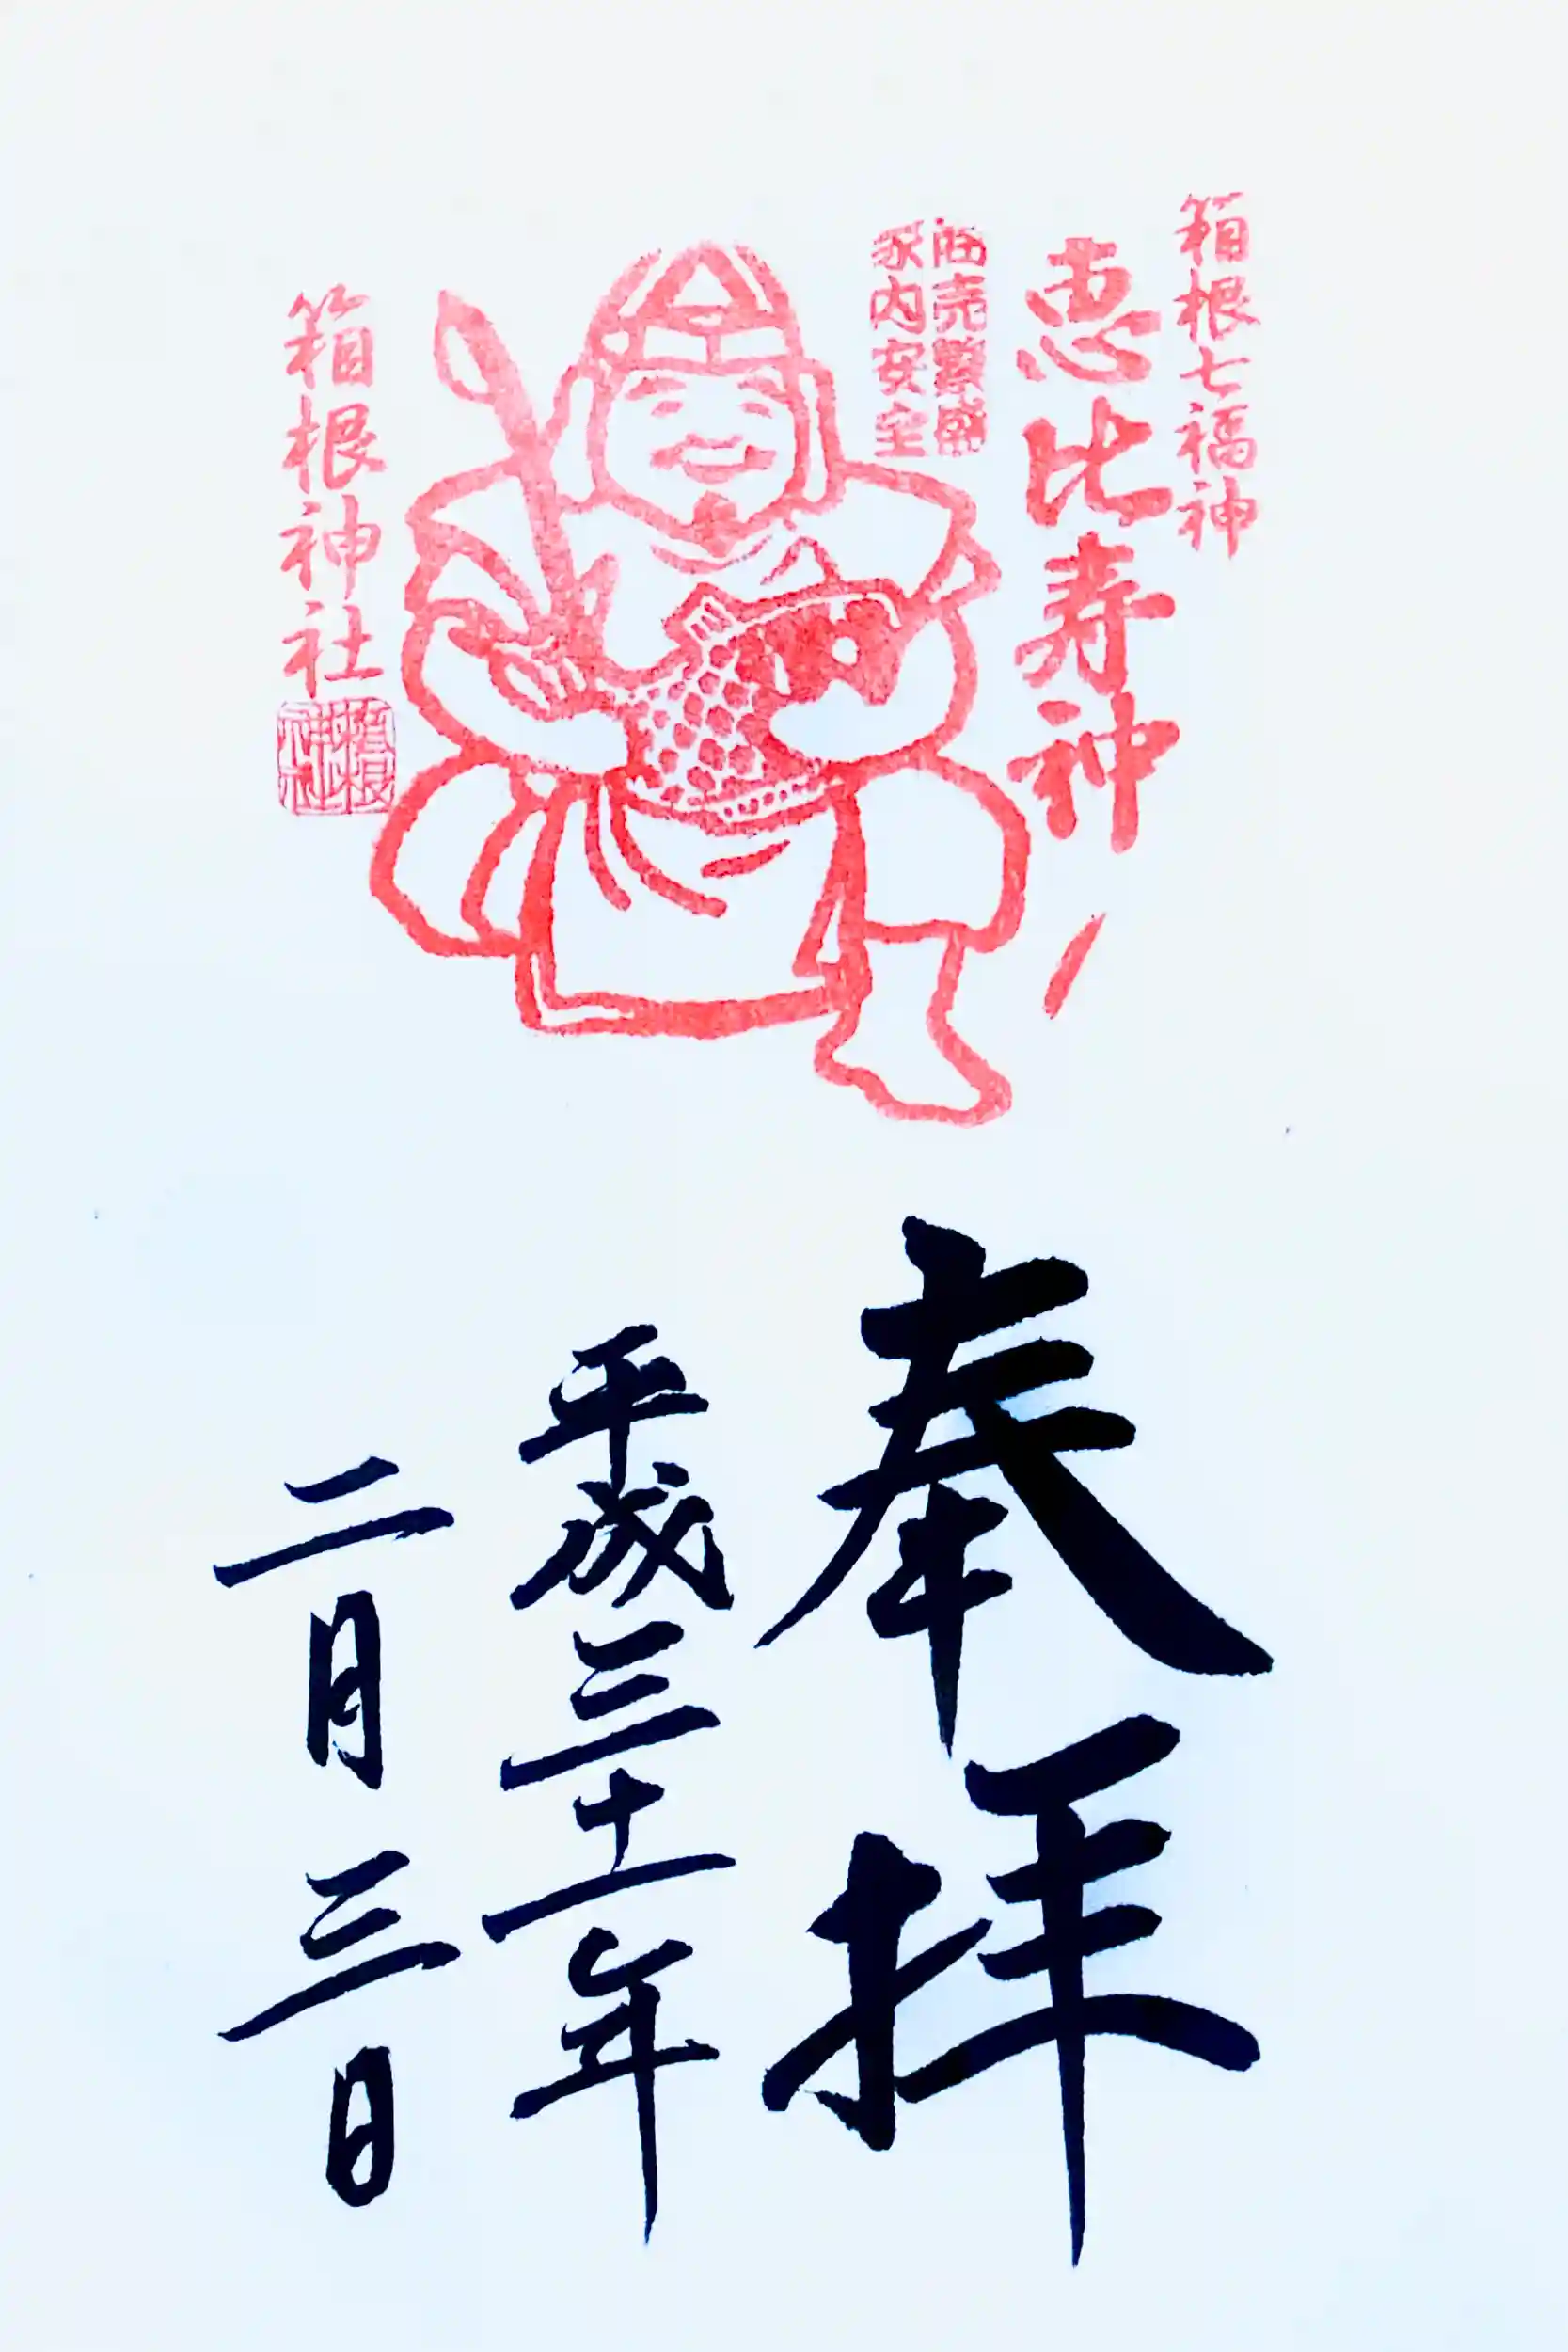 箱根七福神
恵比寿神
商売繁盛
家内安全
箱根神社
箱根
神社
奉拝
平成三十一年
二月三日